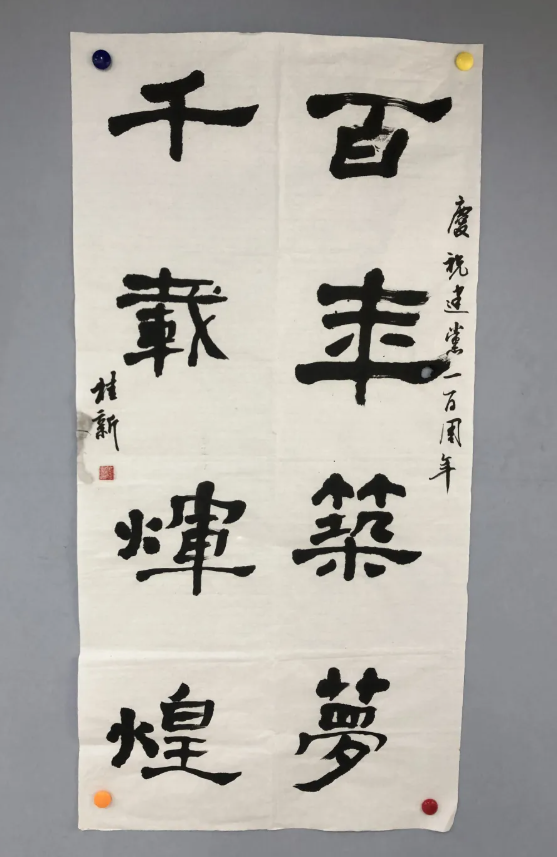 慶祝建黨一百周年
百年築夢
千載輝煌
桂新